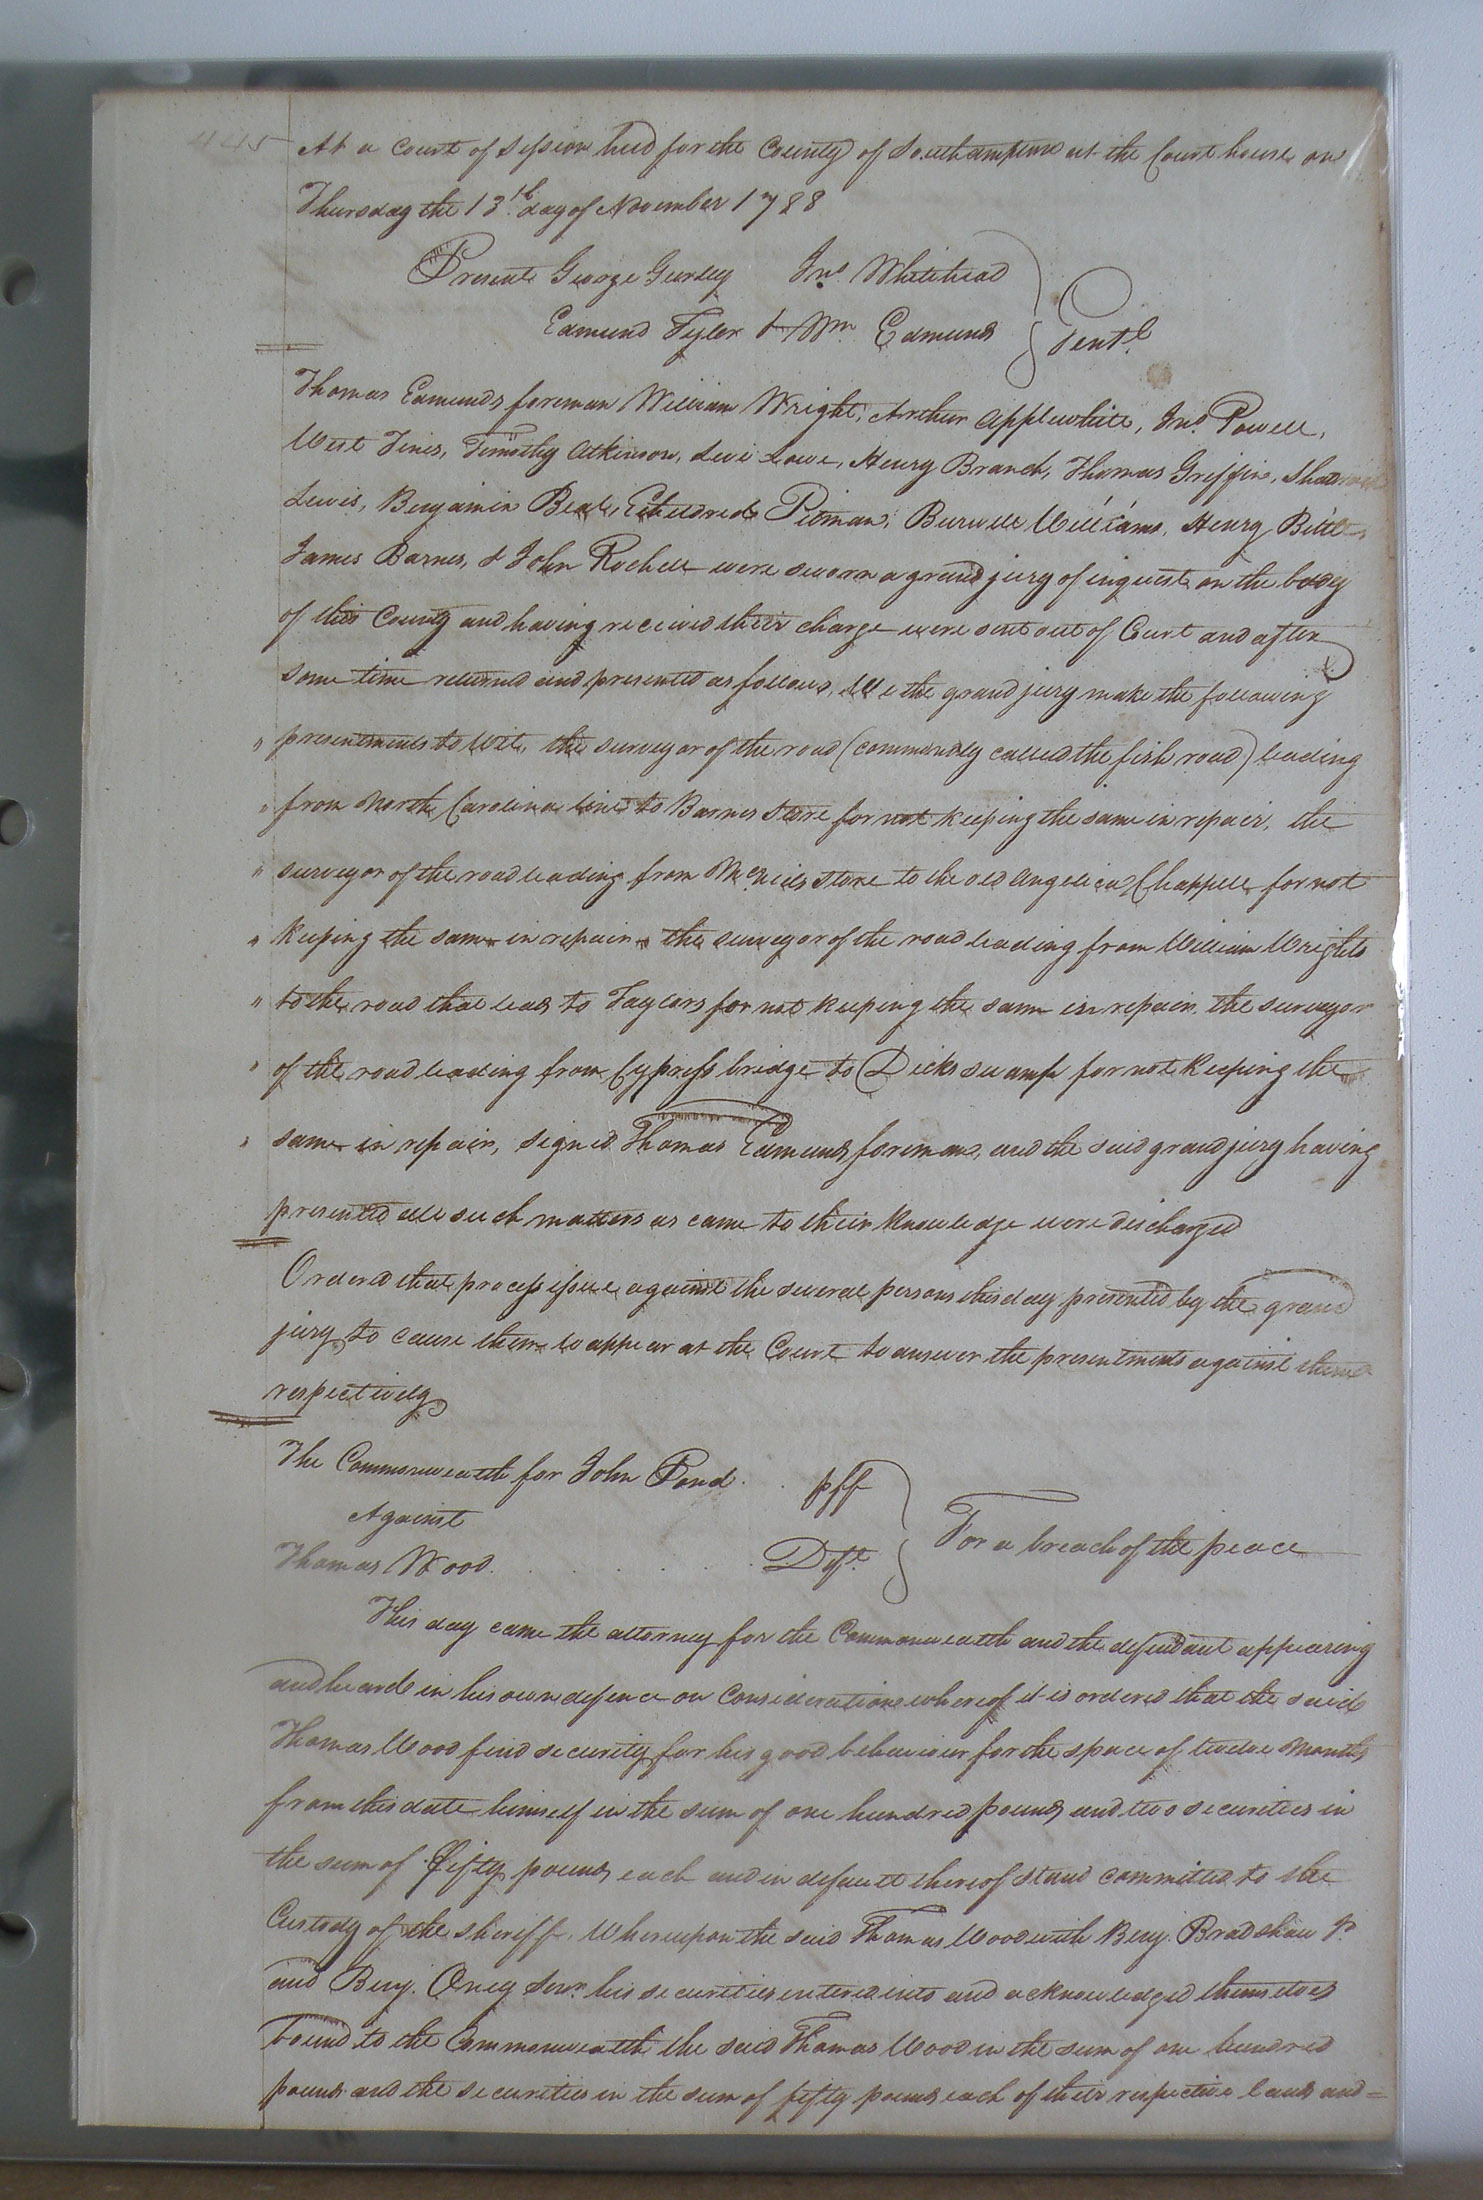 445
At a Court of Session held for the County of Southampton at the Court house on
Thursday the 13th. day of November 1788
Present George Gurley Jno. Whitehead
Edmund Tyler & Wm. Edmunds } Gentl.
Thomas Edmunds foreman William Wright, Arthur Applewhite, Jno. Powell,
West Tines, Timothy Atkinson, Levi Lowe, Henry Branch, Thomas Griffin, Shadrack
Lewis, Benjamin Beal, Etheldred Pitman, Burwell Williams, Henry Bittle,
James Barnes, & John Rochell were sworn a grand jury of inquest on the body
of this County and having received their charge were sent out of Court and after
some time returned and presented as follows, We the grand jury make the following
" presentments to Wit, the surveyor of the road (commonly called the fish road) leading
" from North Carolina line to Barnes Store for not keeping the same in repair, the
" surveyor of the road leading from store to the old Angelica Chappell for not
" keeping the same in repair the surveyor of the road leading from William Wrights
" to the road that leads to Taylors for not keeping the same in repair, the surveyor
" of the road leading from Cypress bridge to Dicks swamp for not keeping the
" same in repair, signed Thomas Edmunds foreman, and the said grand jury having
presented all such matters as came to their knowledge were discharged
Ordered that process issue against the several persons this day presented by the grand
jury to cause them to appear at the Court to answer the presentments against them
respectively
The Commonwealth for John Pond . . plf
Against
Thomas Wood . . . . . Dft. } For a breach of the peace
This day came the attorney for the Commonwealth and the defendant appearing
and heard in his own defence on Consideration whereof it is ordered that the said
Thomas Wood find security for his good behaviour for the space of twelve Months
from this date himself in the sum of one hundred pounds and two securities in
the sum of fifty pounds each and in default thereof stand committed to the
Custody of the sheriff. Whereupon the said Thomas Wood with Benj. Bradshaw Jr.
and Benj. Oney Senr. his securities entered into and acknowledged themselves
bound to the Commonwealth the said Thomas Wood in the sum of one hundred
pounds and the securities in the sum of fifty pounds each of their respective lands and=